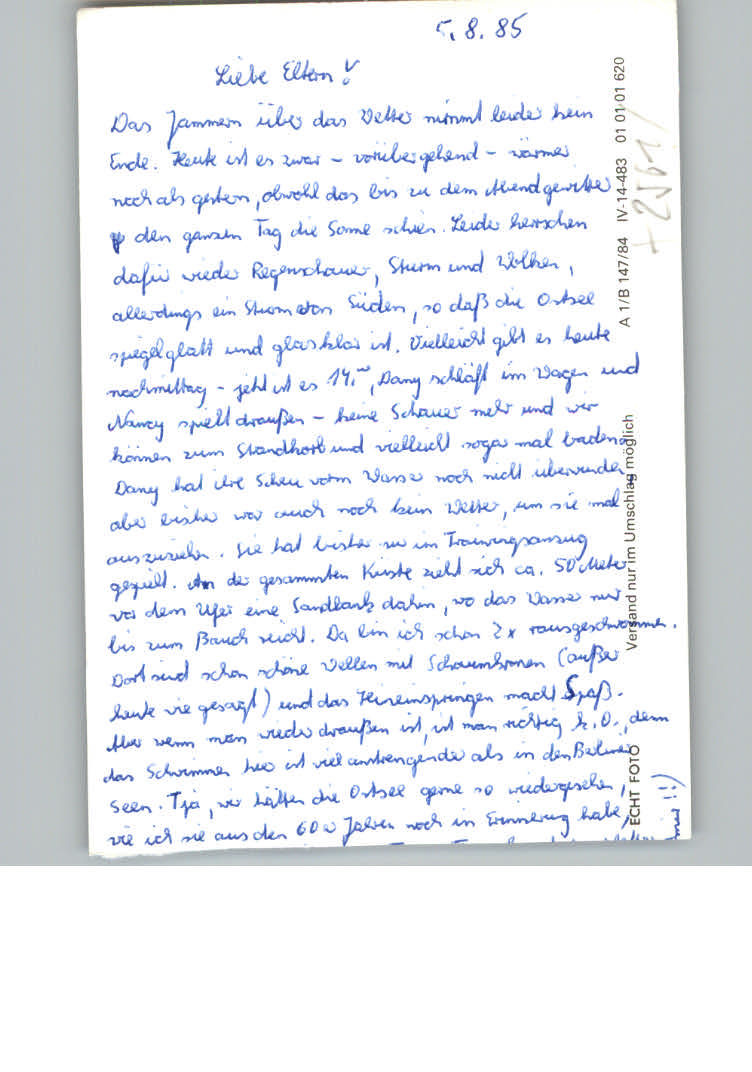 5.8.85
Liebe Eltern!
Das Jammern über das Wetter nimmt leider kein
Ende. Heute ist es zwar – vorübergehend – wärmer
noch als gestern, obwohl das bis zu dem Abendgewitter
den ganzen Tag die Sonne schien. Leider herrschen
dafür wieder Regenschauer, Sturm und Wolken,
allerdings ein Sturm von Süden, so daß die Ostsee
spiegelglatt und glasklar ist. Vielleicht gibt es heute
nachmittag – jetzt ist es 14.00, Dany schläft im Wagen und
Nancy spielt draußen – keine Schauer mehr und wir
können zum Strandkorb und vielleicht sogar mal baden.
Dany hat ihre Scheu vorm Wasser noch nicht überwunden,
aber bisher war auch noch kein Wetter, um sie mal
auszuziehn. Sie hat bisher nur im Trainingsanzug
gespielt. An der gesammten Küste zieht sich ca. 50 Meter
vor dem Ufer eine Sandbank dahin, wo das Wasser nur
bis zum Bauch reicht. Da bin ich schon 2x rausgeschwommen.
Dort sind schon schöne Wellen mit Schaumkronen (außer
heute wie gesagt) und das Hineinspringen macht Spaß.
Aber wenn man wieder draußen ist, ist man richtig k.O., denn
das Schwimmen hier ist viel anstrengender als in den Berliner
Seen. Tja, wir hätten die Ostsee gerne so wiedergesehen,
wie ich sie aus den 60er Jahren noch in Erinnerung habe,
nur
ECHT FOTO
Versand nur im Umschlag möglich
A 1/B 147/84 IV-14-483 01 01 01 620
+2561/